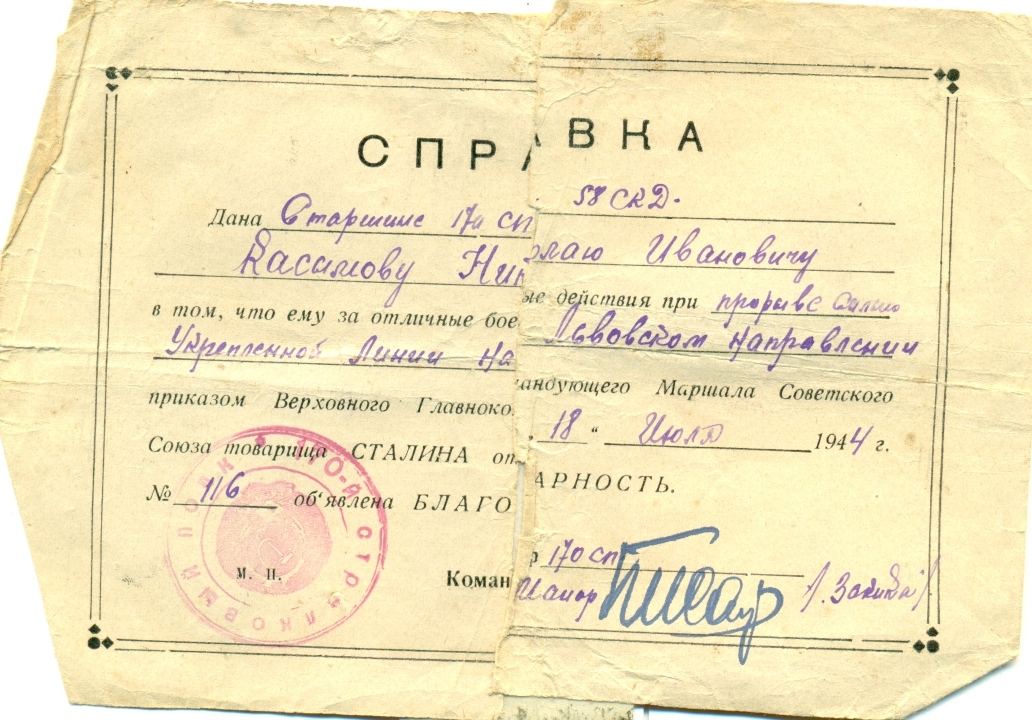 СПРАВКА
Дана Старшине 170 СП 58 СКД.
Касимову Николаю Ивановичу
в том, что ему за отличные бое ые действия при прорыве сильно
Укрепленной Линии на Львовском направлении
приказом Верховного Главноко андующего Маршала Советского
Союза товарища СТАЛИНА от „18“ Июля 1944 г.
№ 116 об'явлена БЛАГО АРНОСТЬ.
М. П.
Коман р 170 сп
Майор
170-й стрелковый полк